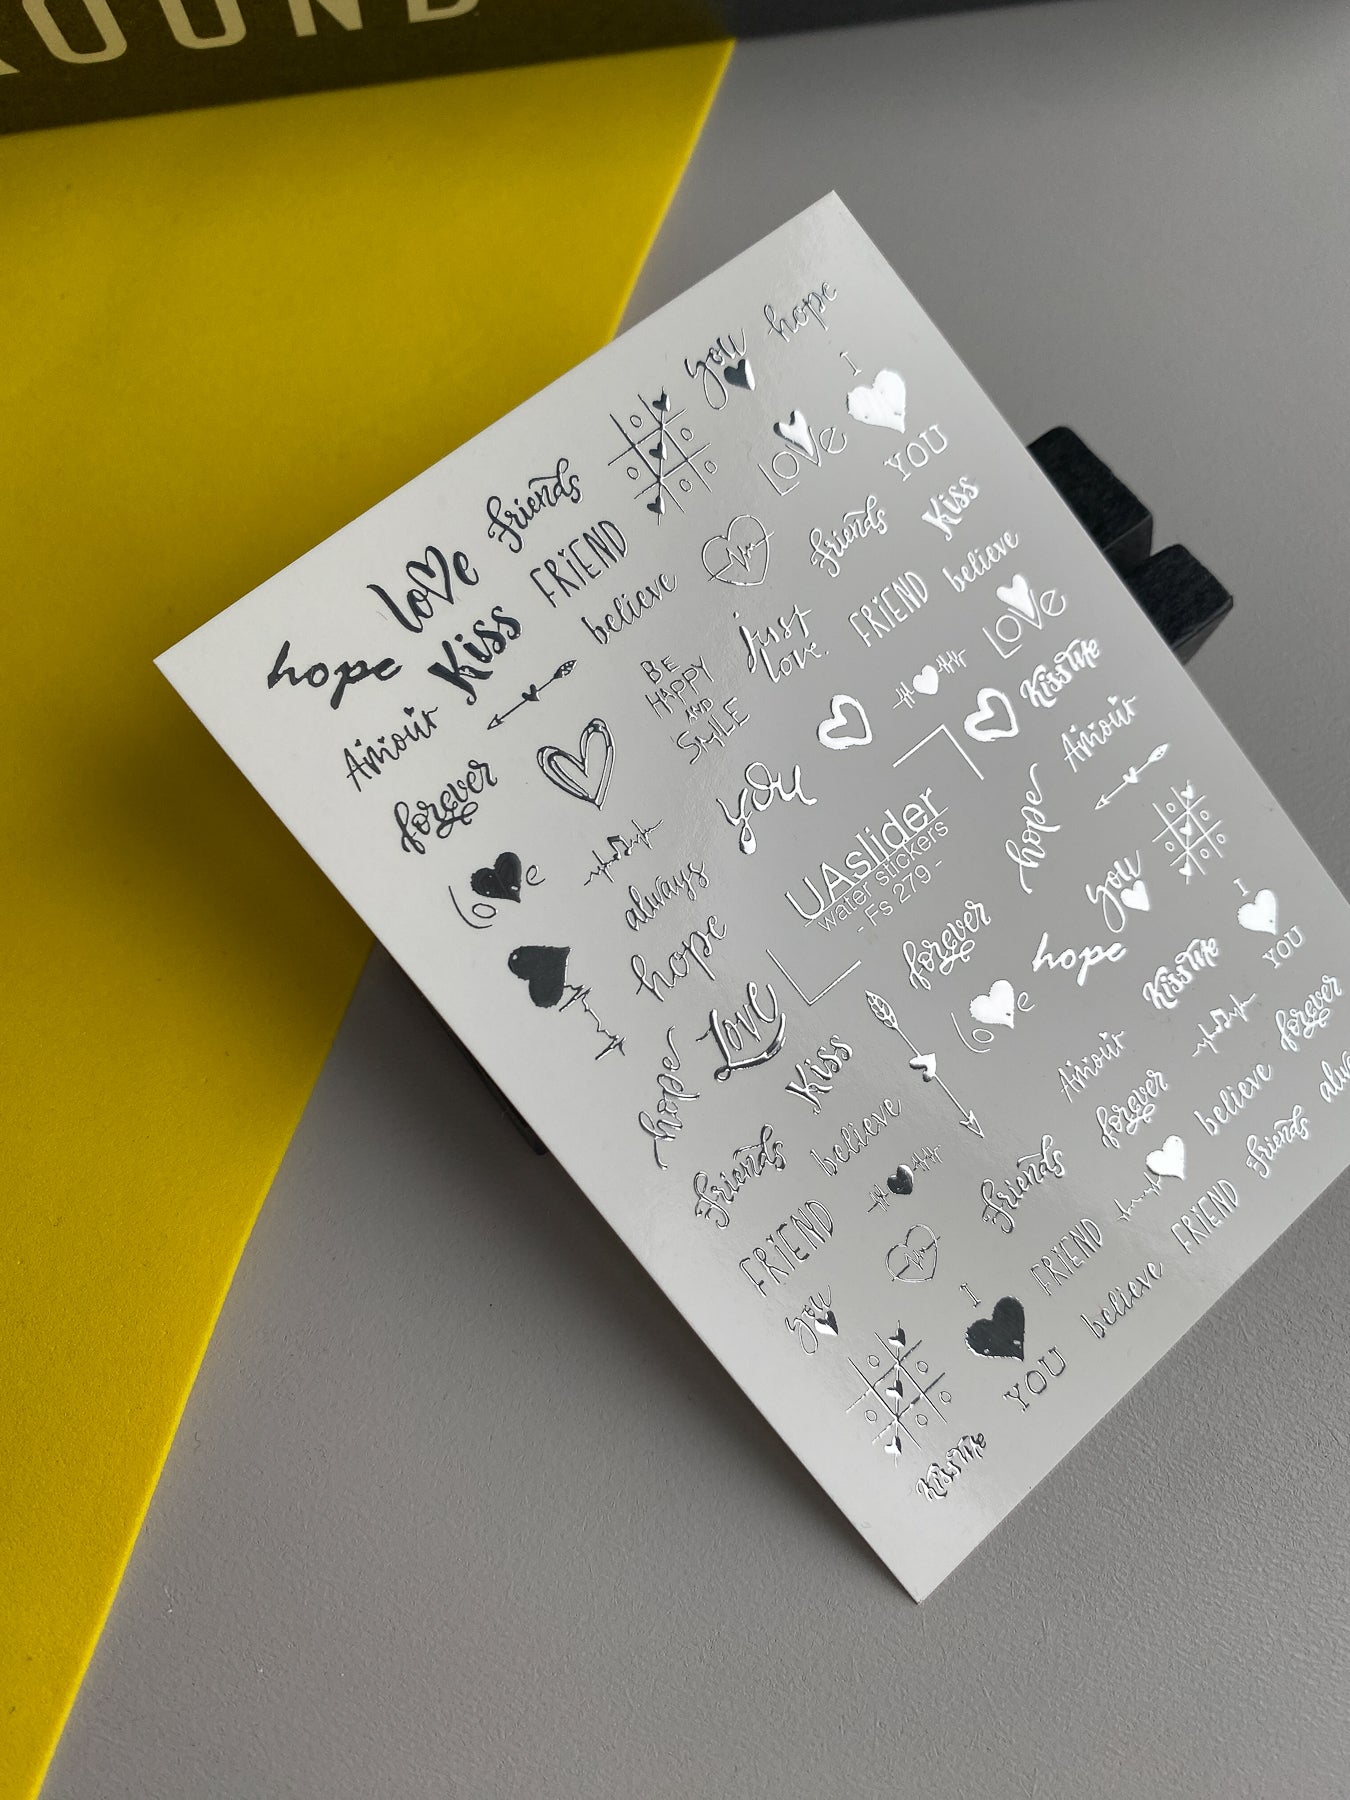 OUND
hope
you
I
YOU
LOVE
Friends
love
FRIEND
Kiss
hope
believe
Friends
Kiss
believe
FRIEND
just
love.
LOVE
BE
HAPPY
AND
SMILE
Kiss Me
Amour
forever
you
Amour
hope
UAslider
water stickers
- Fs 279 -
love
always
hope
you
I
YOU
forever
hope
Kiss Me
love
LOVE
Kiss
hope
Amour
forever
forever
believe
believe
Friends
Friends
Friends
FRIEND
FRIEND
FRIEND
you
I
YOU
believe
Kiss Me